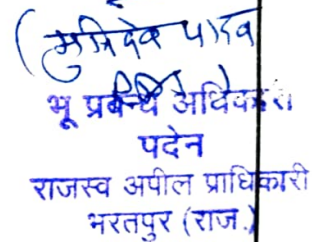 (मुनिदेव यादव)
भू प्रबन्ध अधिकारी
पदेन
राजस्व अपील प्राधिकारी
भरतपुर (राज.)